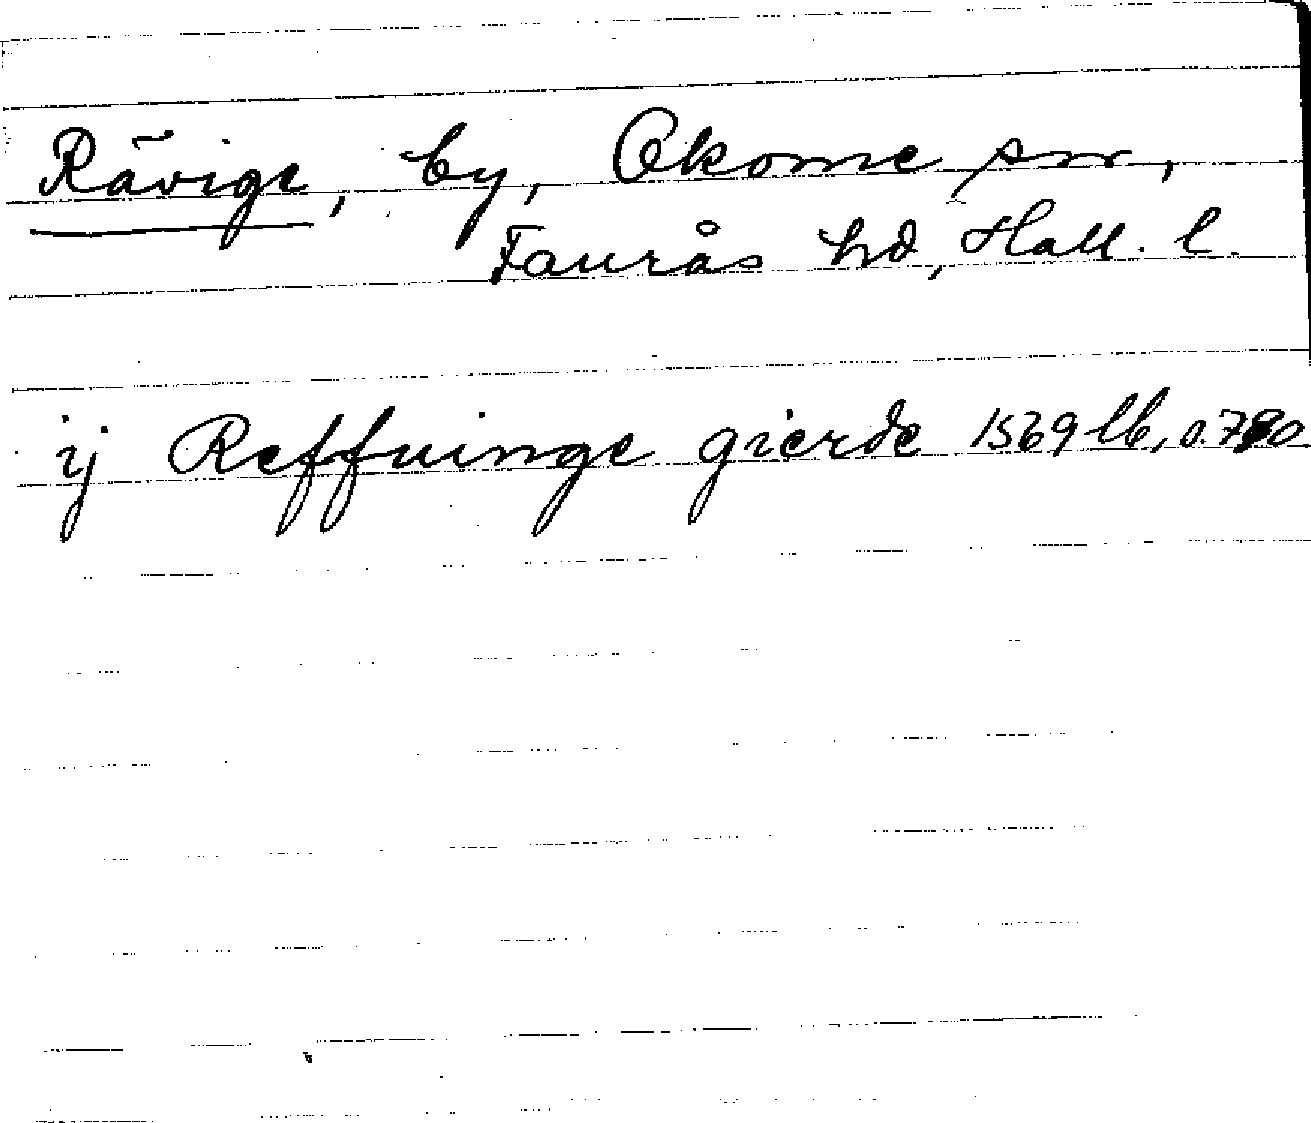 Rävige, by, Okome sn,
Faurås hd, Hall. l.
ij Reffuinge gierde 1569 lb, s. 780